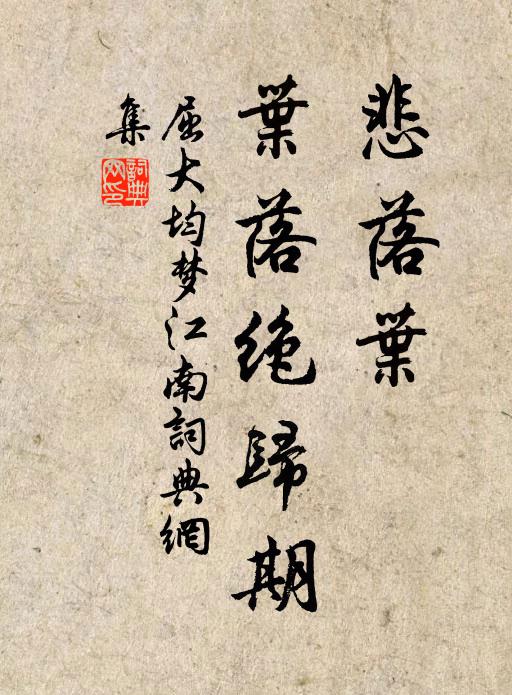 悲落葉
葉落絶歸期
屈大均梦江南詞典網
集
詞典
网印